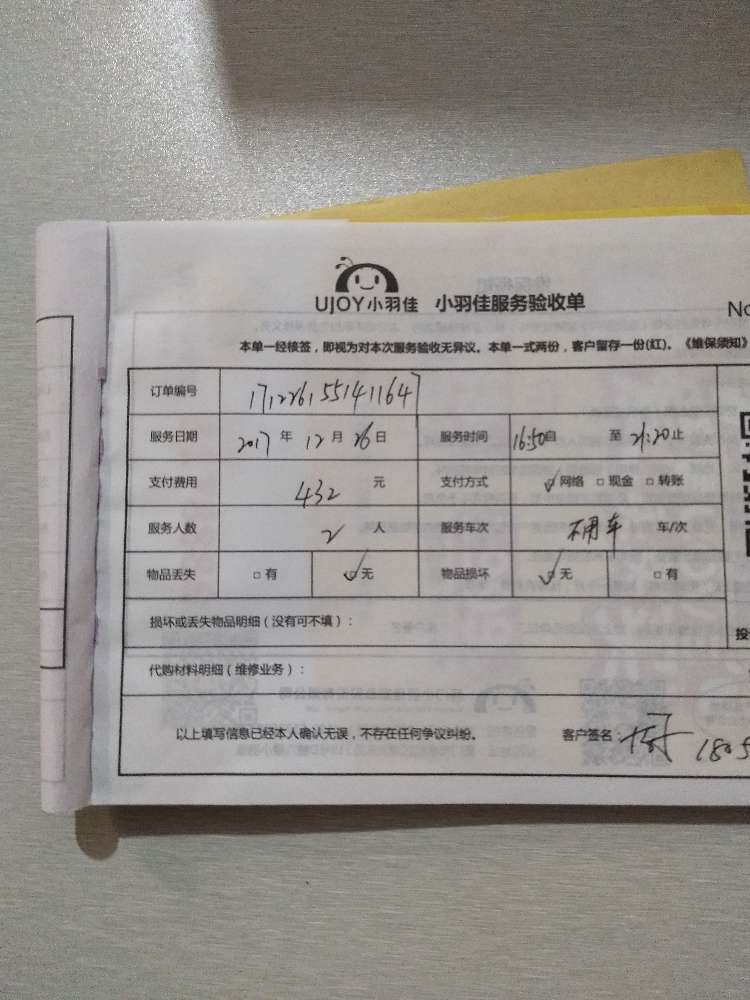 UJOY小羽佳 小羽佳服务验收单
No
本单一经核签，即视为对本次服务验收无异议。本单一式两份，客户留存一份(红)。《维保须知》
订单编号 171226155141164
服务日期 2017 年 12 月 26 日 服务时间 16:50自 至 21:20止
支付费用 432 元 支付方式 ☑网络 □现金 □转账
服务人数 2 人 服务车次 不用车 车/次
物品丢失 □有 ☑无 物品损坏 ☑无 □有
损坏或丢失物品明细（没有可不填）：
投
代购材料明细（维修业务）：
以上填写信息已经本人确认无误，不存在任何争议纠纷。 客户签名： 1805